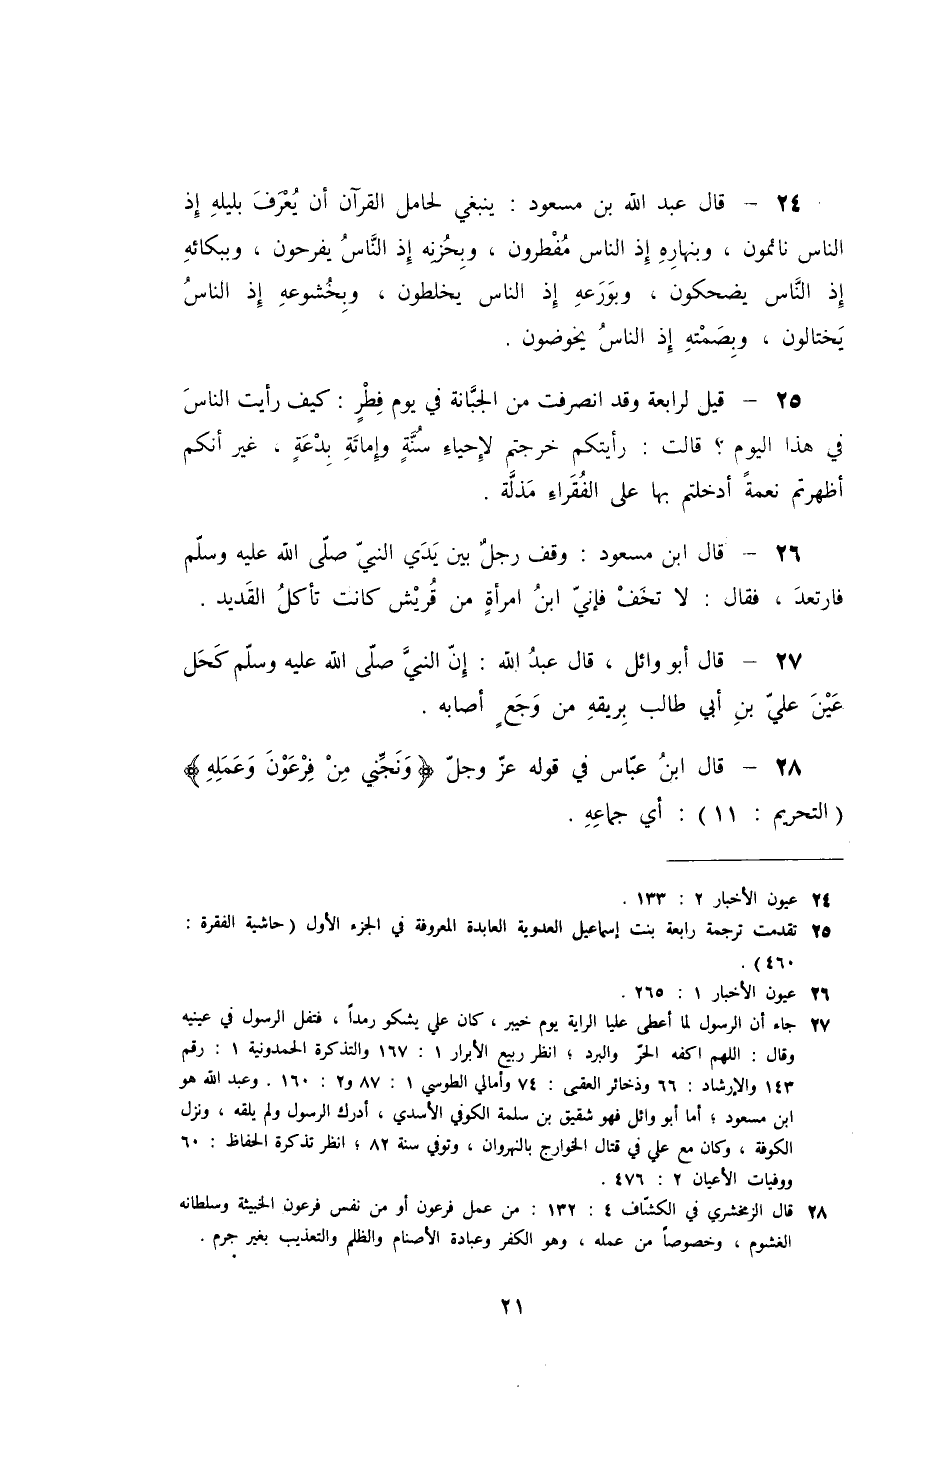 ٢٤ – قال عبد الله بن مسعود : ينبغي لحامل القرآن أن يُعْرَفَ بليلهِ إذ
الناس نائمون ، وبنهارِهِ إذ الناس مُفْطرون ، وبِحُزنِه إذ النَّاسُ يفرحون ، وببكائهِ
إذ النَّاس يضحكون ، وبوَرَعهِ إذ الناس يخلطون ، وبِخُشوعهِ إذ الناسُ
يَختالون ، وبِصَمْتهِ إذ الناسُ يخوضون .
٢٥ – قيل لرابعة وقد انصرفت من الجبَّانة في يوم فِطْرٍ : كيف رأيت الناسَ
في هذا اليوم ؟ قالت : رأيتكم خرجتم لإحياءِ سُنَّةٍ وإماتَةِ بِدْعَةٍ ، غير أنكم
أظهرتم نعمةً أدخلتم بها على الفُقَراءِ مَذلَّة .
٢٦ – قال ابن مسعود : وقف رجلٌ بين يَدَي النبيّ صلّى الله عليه وسلّم
فارتعدَ ، فقال : لا تخَفْ فإنيّ ابنُ امرأةٍ من قُريْش كانت تأكلُ القَديد .
٢٧ – قال أبو وائل ، قال عبدُ الله : إنّ النبيَّ صلّى الله عليه وسلّم كَحَل
عَيْنَ عليّ بنِ أبي طالب بِريقهِ من وَجَعٍ أصابه .
٢٨ – قال ابنُ عبّاس في قوله عزّ وجلّ ﴿ وَنَجِّني مِنْ فِرْعَوْنَ وَعَمَلِهِ ﴾
( التحريم : ١١ ) : أي جماعِهِ .
٢٤ عيون الأخبار ٢ : ١٣٣ .
٢٥ تقدمت ترجمة رابعة بنت إسماعيل العدوية العابدة المعروفة في الجزء الأول ( حاشية الفقرة :
٤٦٠ ) .
٢٦ عيون الأخبار ١ : ٢٦٥ .
٢٧ جاء أن الرسول لما أعطى عليا الراية يوم خيبر ، كان علي يشكو رمداً ، فتفل الرسول في عينيه
وقال : اللهم اكفه الحرّ والبرد ؛ انظر ربيع الأبرار ١ : ١٦٧ والتذكرة الحمدونية ١ : رقم
١٤٣ والإرشاد : ٦٦ وذخائر العقبى : ٧٤ وأمالي الطوسي ١ : ٨٧ و٢ : ١٦٠ . وعبد الله هو
ابن مسعود ؛ أما أبو وائل فهو شقيق بن سلمة الكوفي الأسدي ، أدرك الرسول ولم يلقه ، ونزل
الكوفة ، وكان مع علي في قتال الخوارج بالنهروان ، وتوفي سنة ٨٢ ؛ انظر تذكرة الحفاظ : ٦٠
ووفيات الأعيان ٢ : ٤٧٦ .
٢٨ قال الزمخشري في الكشّاف ٤ : ١٣٢ : من عمل فرعون أو من نفس فرعون الخبيثة وسلطانه
الغشوم ، وخصوصاً من عمله ، وهو الكفر وعبادة الأصنام والظلم والتعذيب بغير جرم .
٢١